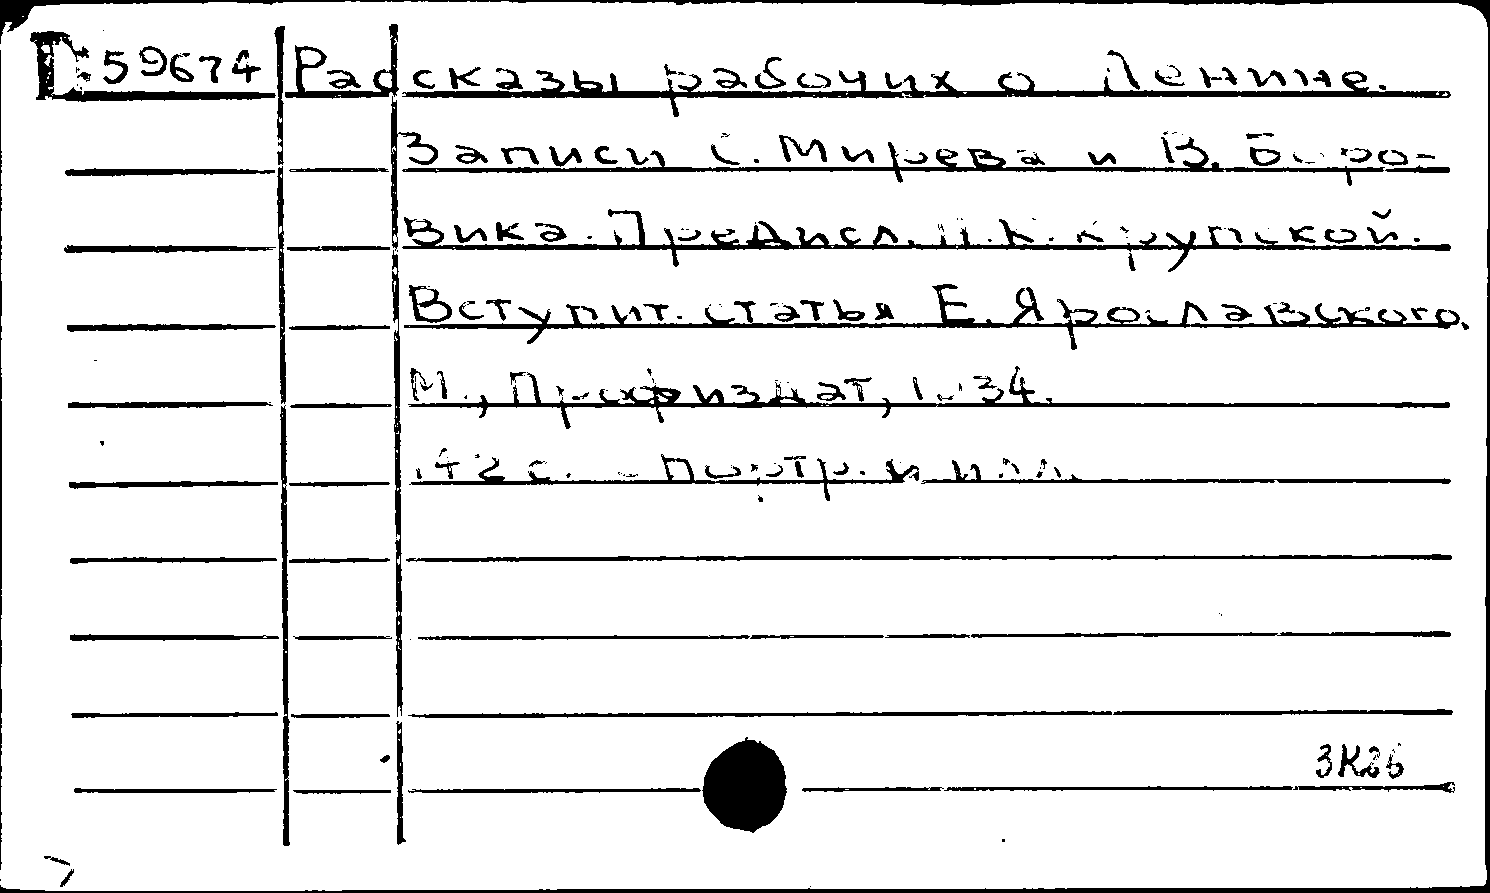 D 59674 Рассказы рабочих о Ленине.
Записи С. Мирева и В. Боро-
вика. Предисл. Н. К. Крупской.
Вступит. статья Е. Ярославского.
М., Профиздат, 1934.
142 с. - Портр. и илл.
3К26